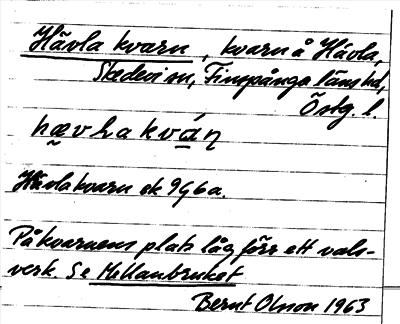 Hävla kvarn, kvarn å Hävla,
Skedevi sn, Finspånga läns hd,
Östg. l.
hævlakván
Hävla kvarn ek 9G 6a.
På kvarnens plats låg förr ett vals-
verk. Se Mellanbruket
Bernt Olsson 1963